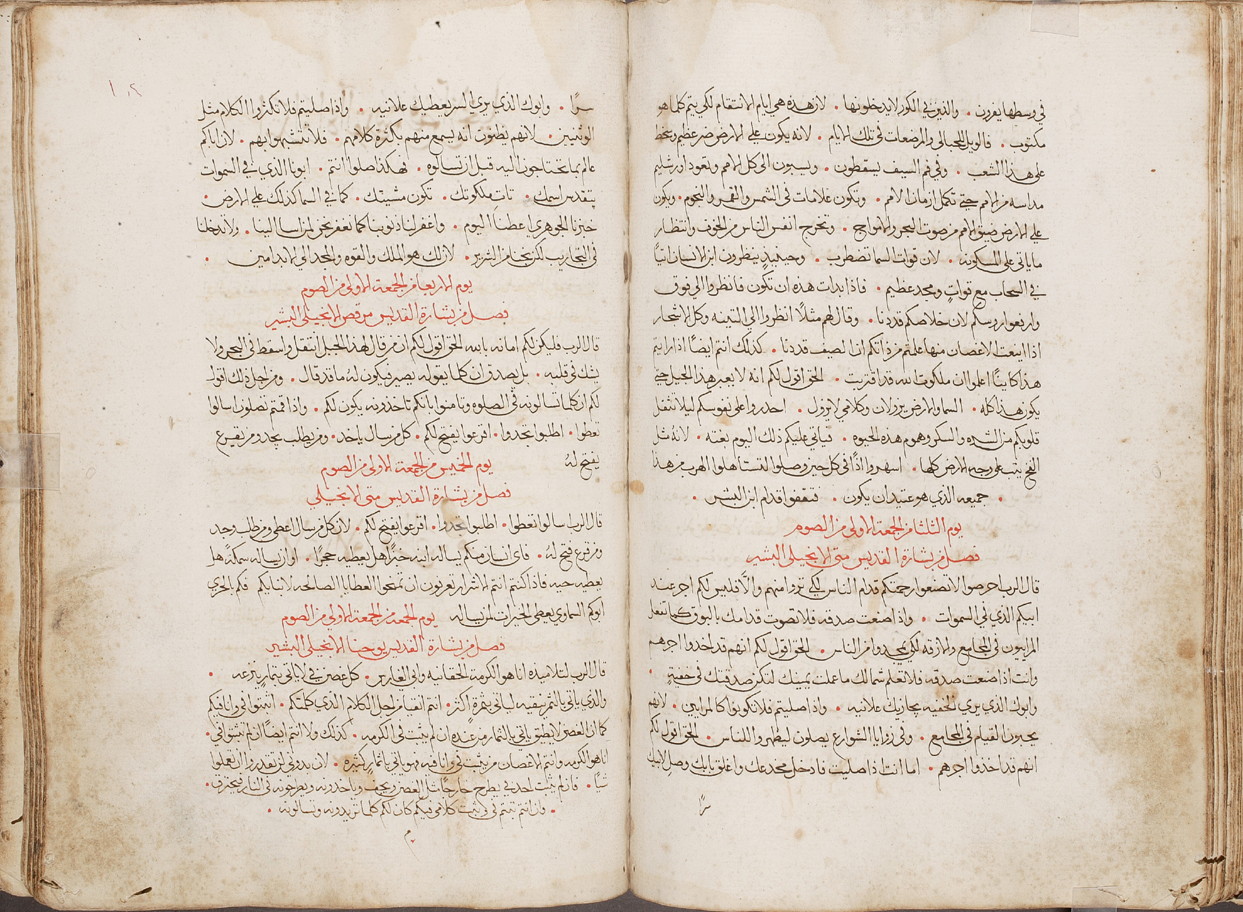 في وسطها يفرون • والذين في الكور لا يدخلونها • لان هذه هي ايام الانتقام لكي يتم كلما هو
مكتوب • فالويل للحبالي والمرضعات في تلك الايام • لانه يكون علي الارض ضر عظيم وسخط
علي هذا الشعب • وفي فم السيف يسقطون • ويسبون الي كل الامم وتعود اورشليم
مداسه من الامم حتي تكمل ازمان الامم • وتكون علامات في الشمس والقمر والنجوم • ويكون
علي الارض ضيق الامم من صوت البحر والامواج • وتخرج انفس الناس من الخوف وانتظار
ما ياتي علي المسكونه • لان قوات السما تضطرب • وحينيذٍ ينظرون ابن الانسان اتيًا
في السحاب مع قواتٍ ومجد عظيم • فاذا بدات هذه ان تكون فانظروا الي فوق
وارفعوا روسكم لان خلاصكم قد دنا • وقال لهم مثلًا انظروا الي التينه وكل الاشجار
اذا اينعت الاغصان منها علمتم من ذاتكم ان الصيف قد دنا • كذلك انتم ايضًا اذا رايتم
هذا كاينًا اعلموا ان ملكوت الله قد اقتربت • الحق اقول لكم انه لا يعبر هذا الجيل حتي
يكون هذا كله • السما والارض يزولان وكلامي لا يزول • احدروا علي نفوسكم ليلا تثقل
قلوبكم من الشره والسكر وهموم هذه الحيوه • فياتي عليكم ذلك اليوم بغته • لانه مثل
الفخ يثب علي وجه الارض كلها • اسهروا اذًا في كل حين وصلوا لتستاهلوا الهرب من هذا
• جميعه الذي هو عتيد ان يكون • فتقفوا قدام ابن البشر •
يوم الثلثا من الجمعه الاولي من الصوم
فصل من بشارة القديس متي الانجيلي البشير
قال الرب احرصوا لا تصنعوا رحمتكم قدام الناس لكي تروا منهم والّا فليس لكم اجر عند
ابيكم الذي في السموات • واذا صنعت صدقه فلا تصوت قدامك بالبوق كما تفعل
المرايون في المجامع والازقه لكي يمجدوا من الناس • الحق اقول لكم انهم قد اخدوا اجرهم
وانت اذا صنعت صدقه فلا تعلم شمالك ما عملت يمينك لتكن صدقتك في خفيه •
وابوك الذي يري الخفيه يجازيك علانيه • واذا صليتم فلا تكونوا كالمرايين • لانهم
يحبون القيام في المجامع • وفي زوايا الشوارع يصلون ليظهروا للناس • الحق اقول لكم
انهم قد اخذوا اجرهم • اما انت اذا صليت فادخل مخدعك واغلق بابك وصل لابيك
سرًا
١٠٢
سرًا • وابوك الذي يري السر يعطيك علانيه • واذا صليتم فلا تكثروا الكلام مثل
الوثنيين • لانهم يظنون انه يسمع منهم بكثرة كلامهم • فلا تتشبهوا بهم • لان اباكم
عالم بما تحتاجون اليه قبل ان تسالوه • فهكذا صلوا انتم • ابونا الذي في السموات
يتقدس اسمك • تات ملكوتك • تكون مشيتك • كما في السما كذلك علي الارض •
خبزنا الجوهري اعطنا اليوم • واغفر لنا ذنوبنا كما نغفر نحن لمن اسا الينا • ولا تدخلنا
في التجاريب لكن نجنا من الشرير • لان لك هو الملك والقوه والمجد الي الابد امين •
يوم الاربعا من الجمعه الاولي من الصوم
فصل من بشارة القديس مرقص الانجيلي البشير
قال الرب فليكن لكم امانه بالله الحق اقول لكم ان من قال لهذا الجبل انتقل واسقط في البحر ولا
يشك في قلبه • بل يصدق ان كلما يقوله يصير فيكون له ما قد قال • ومن اجل ذلك اقول
لكم ان كلما تسالونه في الصلوه وتامنوا بانكم تاخدونه يكون لكم • واذا قمتم تصلون اسالوا
تعطوا • اطلبوا تجدوا • اقرعوا يفتح لكم • كل من سال ياخد • ومن يطلب يجد ومن يقرع
يفتح لهُ
يوم الخميس من الجمعه الاولي من الصوم
فصل من بشارة القديس متي الانجيلي
قال الرب سالوا تعطوا • اطلبوا تجدوا • اقرعوا يفتح لكم • لان كل من سال اعطي ومن طلب وجد
ومن قرع فتح لهُ • فاي انسان منكم يساله ابنه خبزًا هل يعطيه حجرًا • او ان يساله سمكة هل
يعطيه حيه فاذا كنتم انتم الاشرار تعرفون ان تمنحوا العطايا الصالحه لابنايكم فكم بالحري
ابوكم السماوي يعطي الخيرات لمن يساله
يوم الجمعه من الجمعه الاولي من الصوم
فصل من بشارة القديس يوحنا الانجيلي البشير
قال الرب لتلاميذه انا هو الكرمه الحقانيه وابي الغارس • كل غصن في لا ياتي بثمار ينزعه •
والذي ياتي بالثمر ينقيه لياتي بثمرة اكثر • انتم انقيا من اجل الكلام الذي كلمتكم • اثبتوا في وانا فيكم
كما ان الغصن لا يطيق ياتي بالثمار من عنده ان لم يثبت في الكرمه • كذلك ولا انتم ايضًا ان لم تثبتوا في •
انا هو الكرمه وانتم الاغصان من يثبت في وانا فيه فهو ياتي باثمار كثيرة • لان بدوني لن تقدروا ان تفعلوا
شيًا • فان لم يثبت احد في يطرح خارجًا مثل الغصن ويجف وياخدونه ويطرحونه في النار فيحترق •
• فان انتم ثبتم في وثبت كلامي فيكم كان لكم كلما تريدونه وتسالونه •